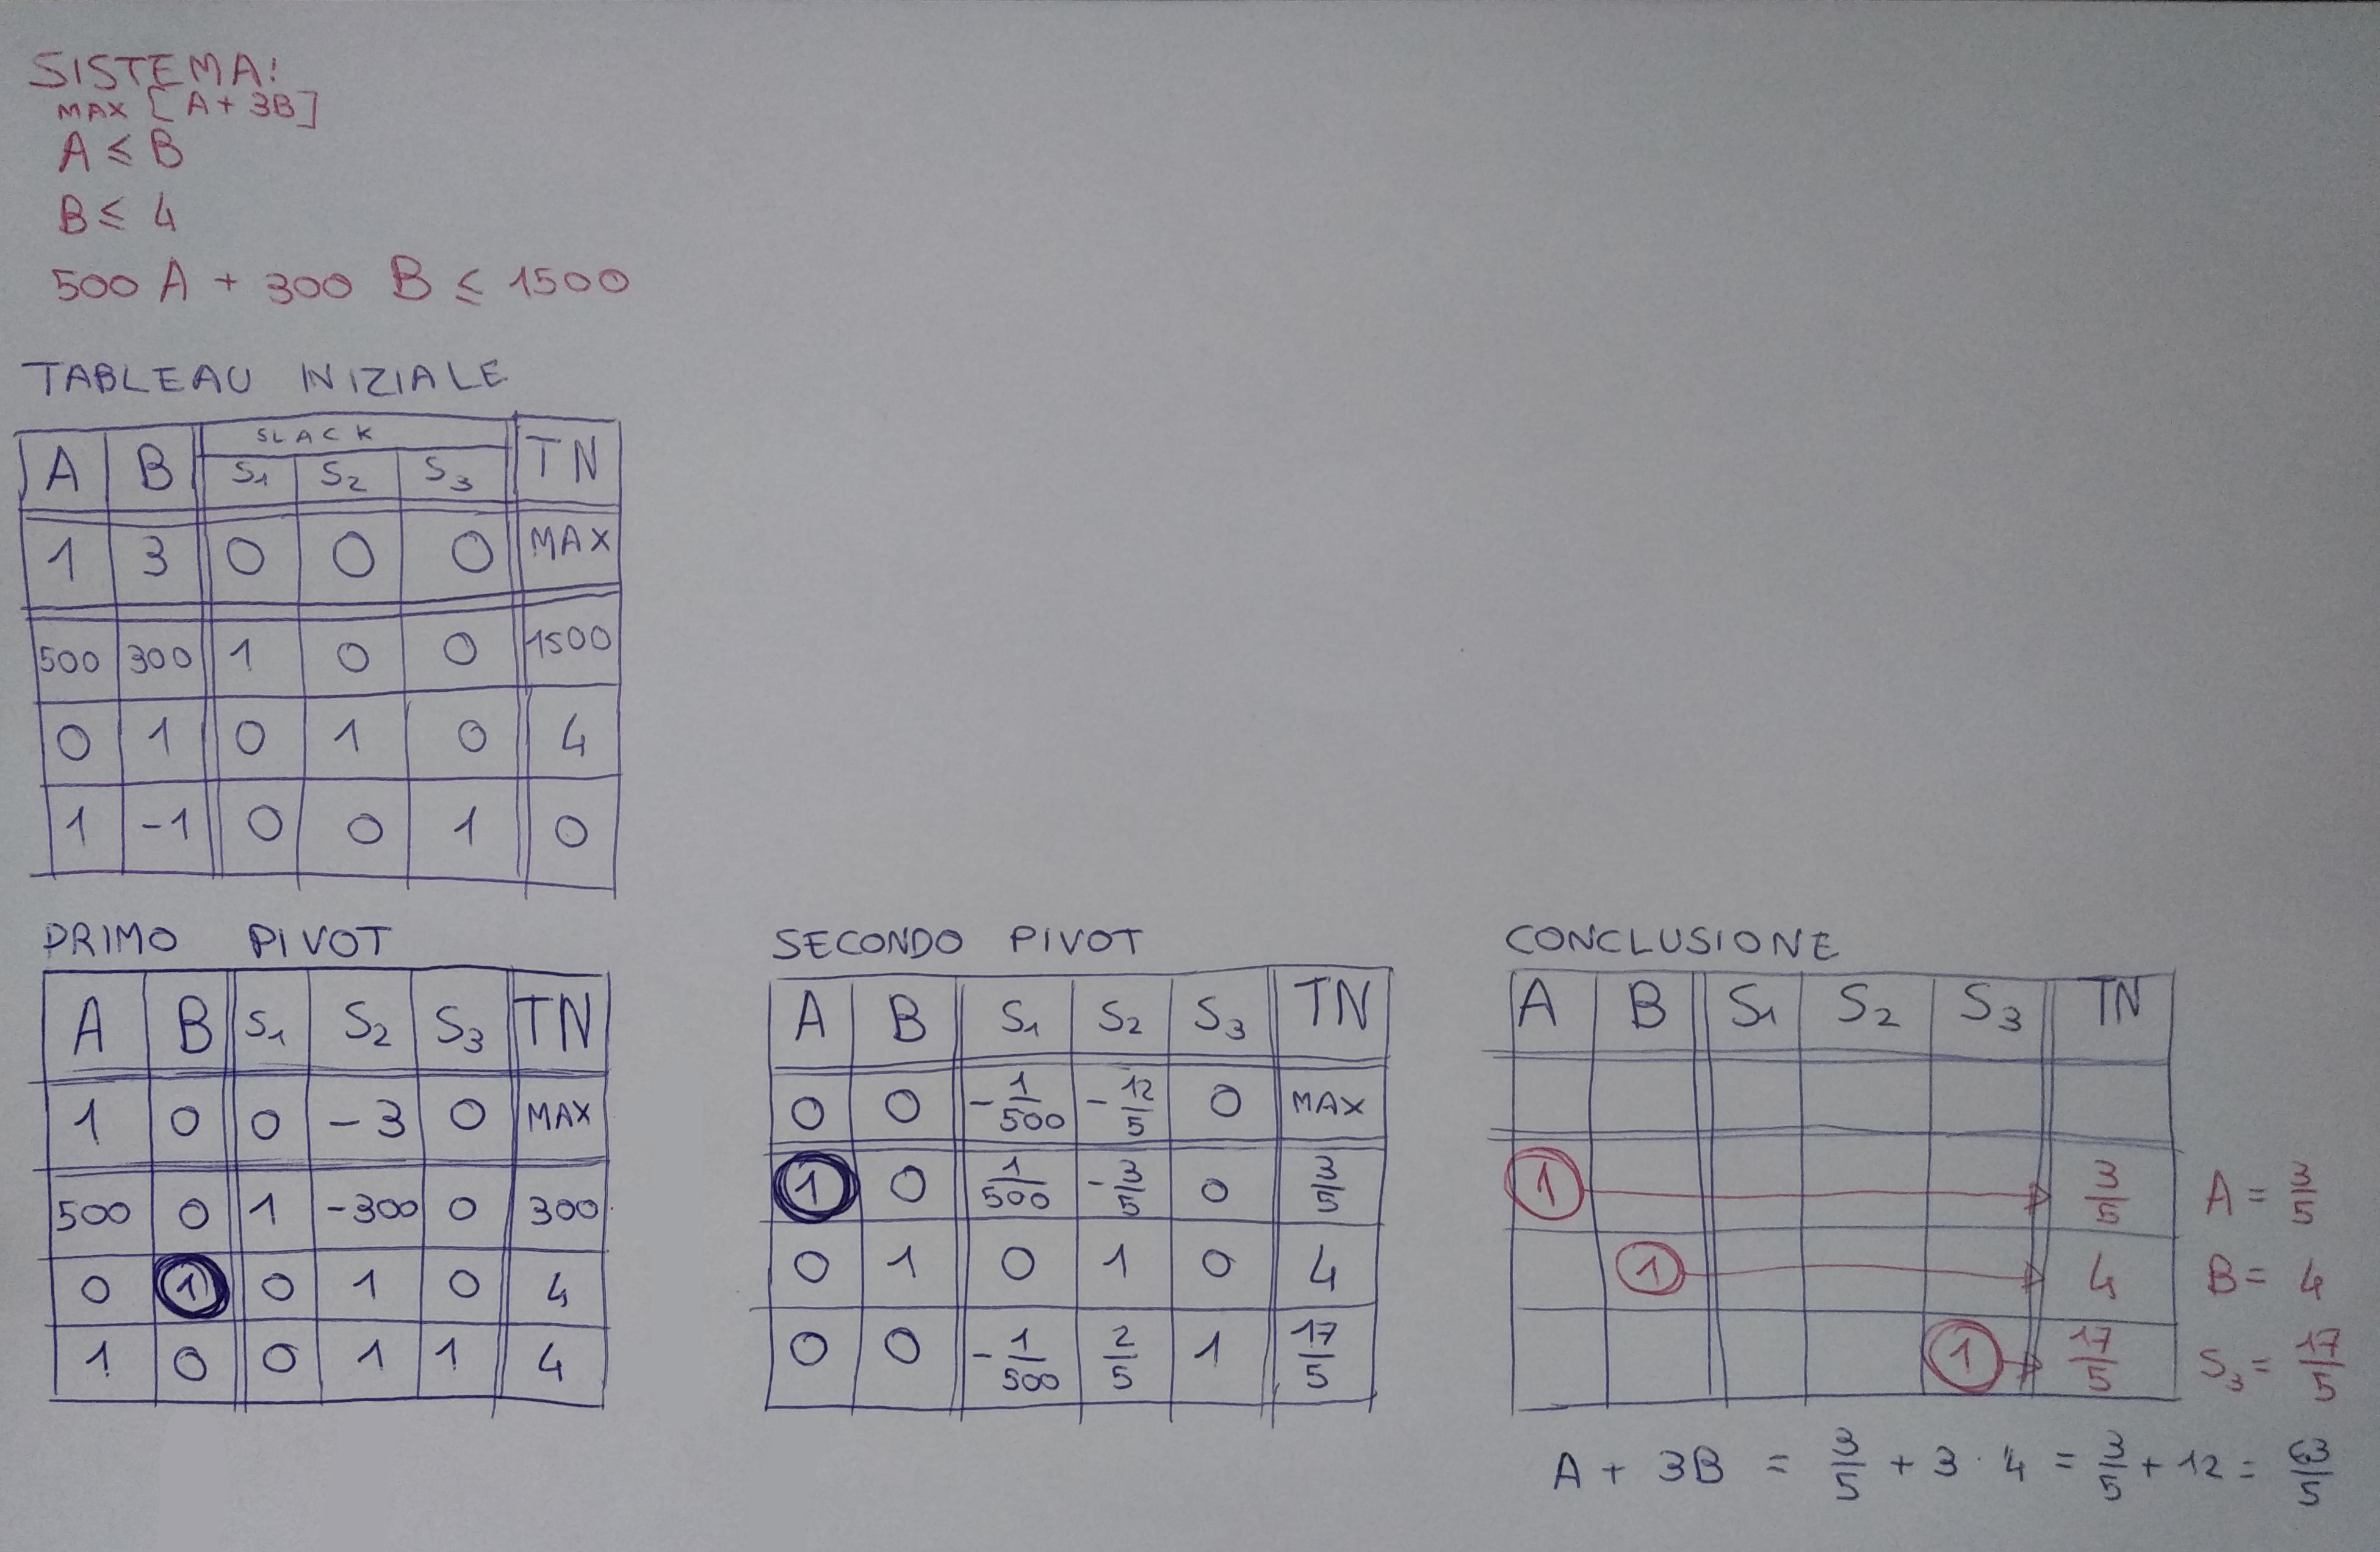 SISTEMA!
MAX [A + 3B]
A ≤ B
B ≤ 4
500 A + 300 B ≤ 1500
TABLEAU INIZIALE
SLACK
A B S1 S2 S3 TN
1 3 0 0 0 MAX
500 300 1 0 0 1500
0 1 0 1 0 4
1 -1 0 0 1 0
PRIMO PIVOT
A B S1 S2 S3 TN
1 0 0 -3 0 MAX
500 0 1 -300 0 300
0 1 0 1 0 4
1 0 0 1 1 4
SECONDO PIVOT
A B S1 S2 S3 TN
0 0 -1/500 -12/5 0 MAX
1 0 1/500 -3/5 0 3/5
0 1 0 1 0 4
0 0 -1/500 2/5 1 17/5
CONCLUSIONE
A B S1 S2 S3 TN
1 → 3/5 A = 3/5
1 → 4 B = 4
1 → 17/5 S3 = 17/5
A + 3B = 3/5 + 3 · 4 = 3/5 + 12 = 63/5